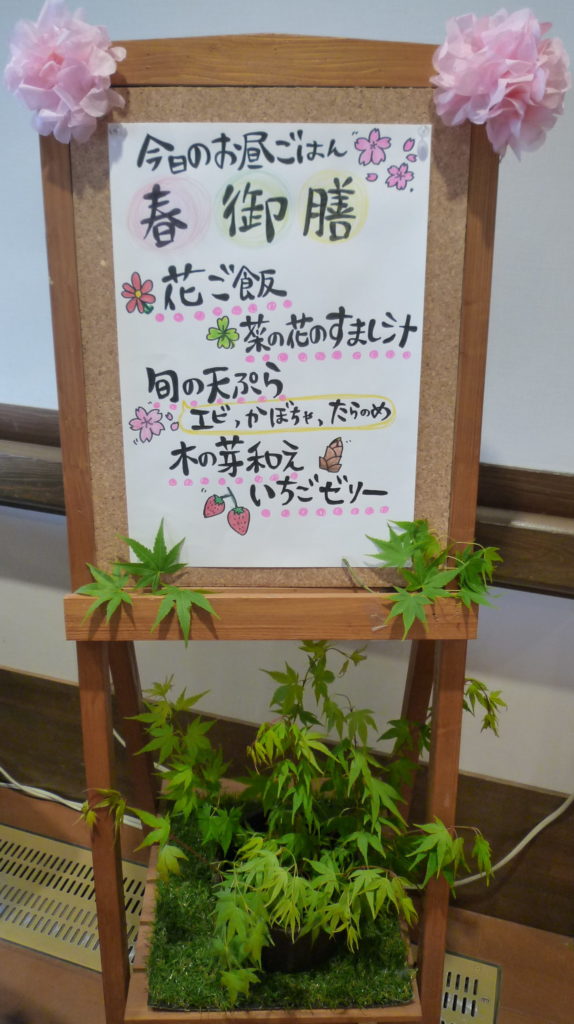 今日のお昼ごはん
春御膳
花ご飯
菜の花のすまし汁
旬の天ぷら
エビ、かぼちゃ、たらのめ
木の芽和え
いちごゼリー